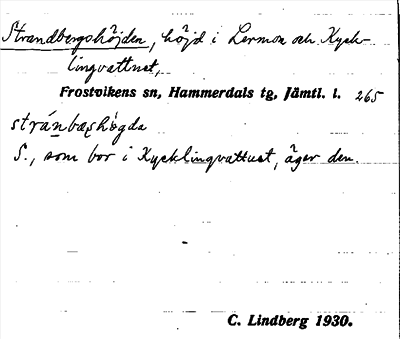 Strandbergshöjden, höjd i Lermon och Kyck-
lingvattnet,
Frostvikens sn, Hammerdals tg, Jämtl. l. 265
stránbæṣhö̀gda
S., som bor i Kycklingvattnet, äger den.
C. Lindberg 1930.